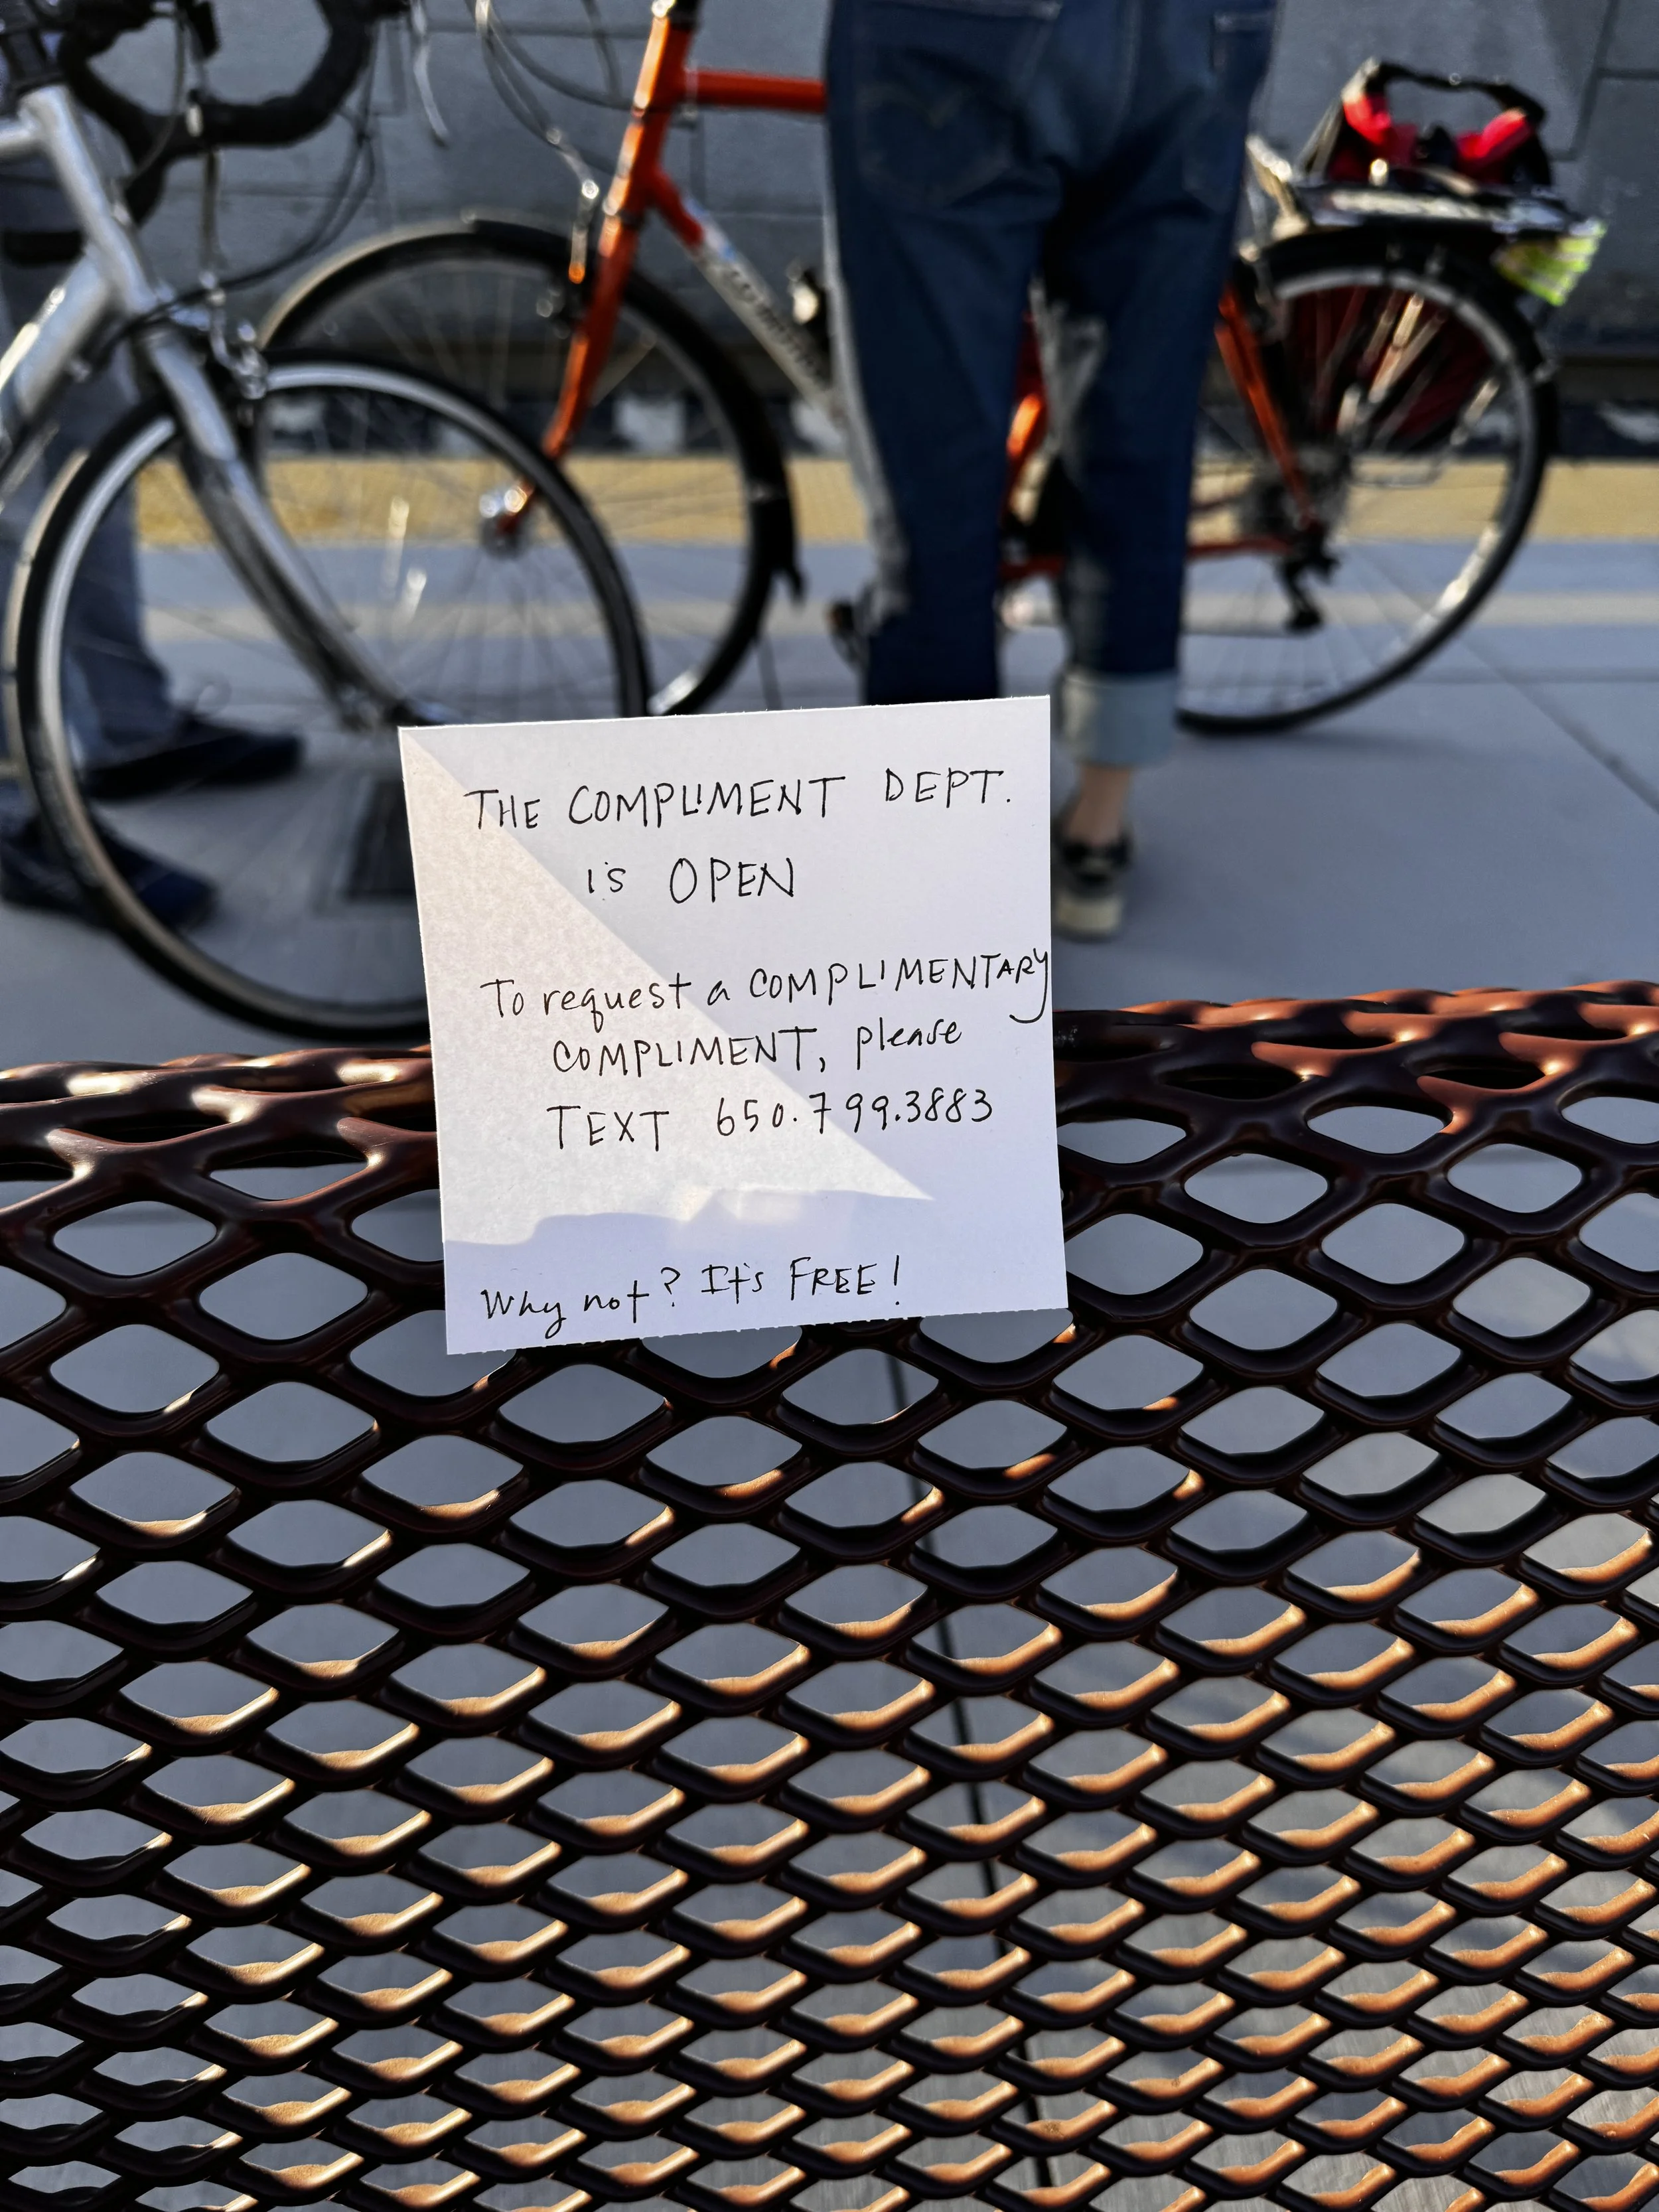 THE COMPLIMENT DEPT.
is OPEN
To request a COMPLIMENTARY
COMPLIMENT, please
TEXT 650.799.3883
Why not? It's FREE!